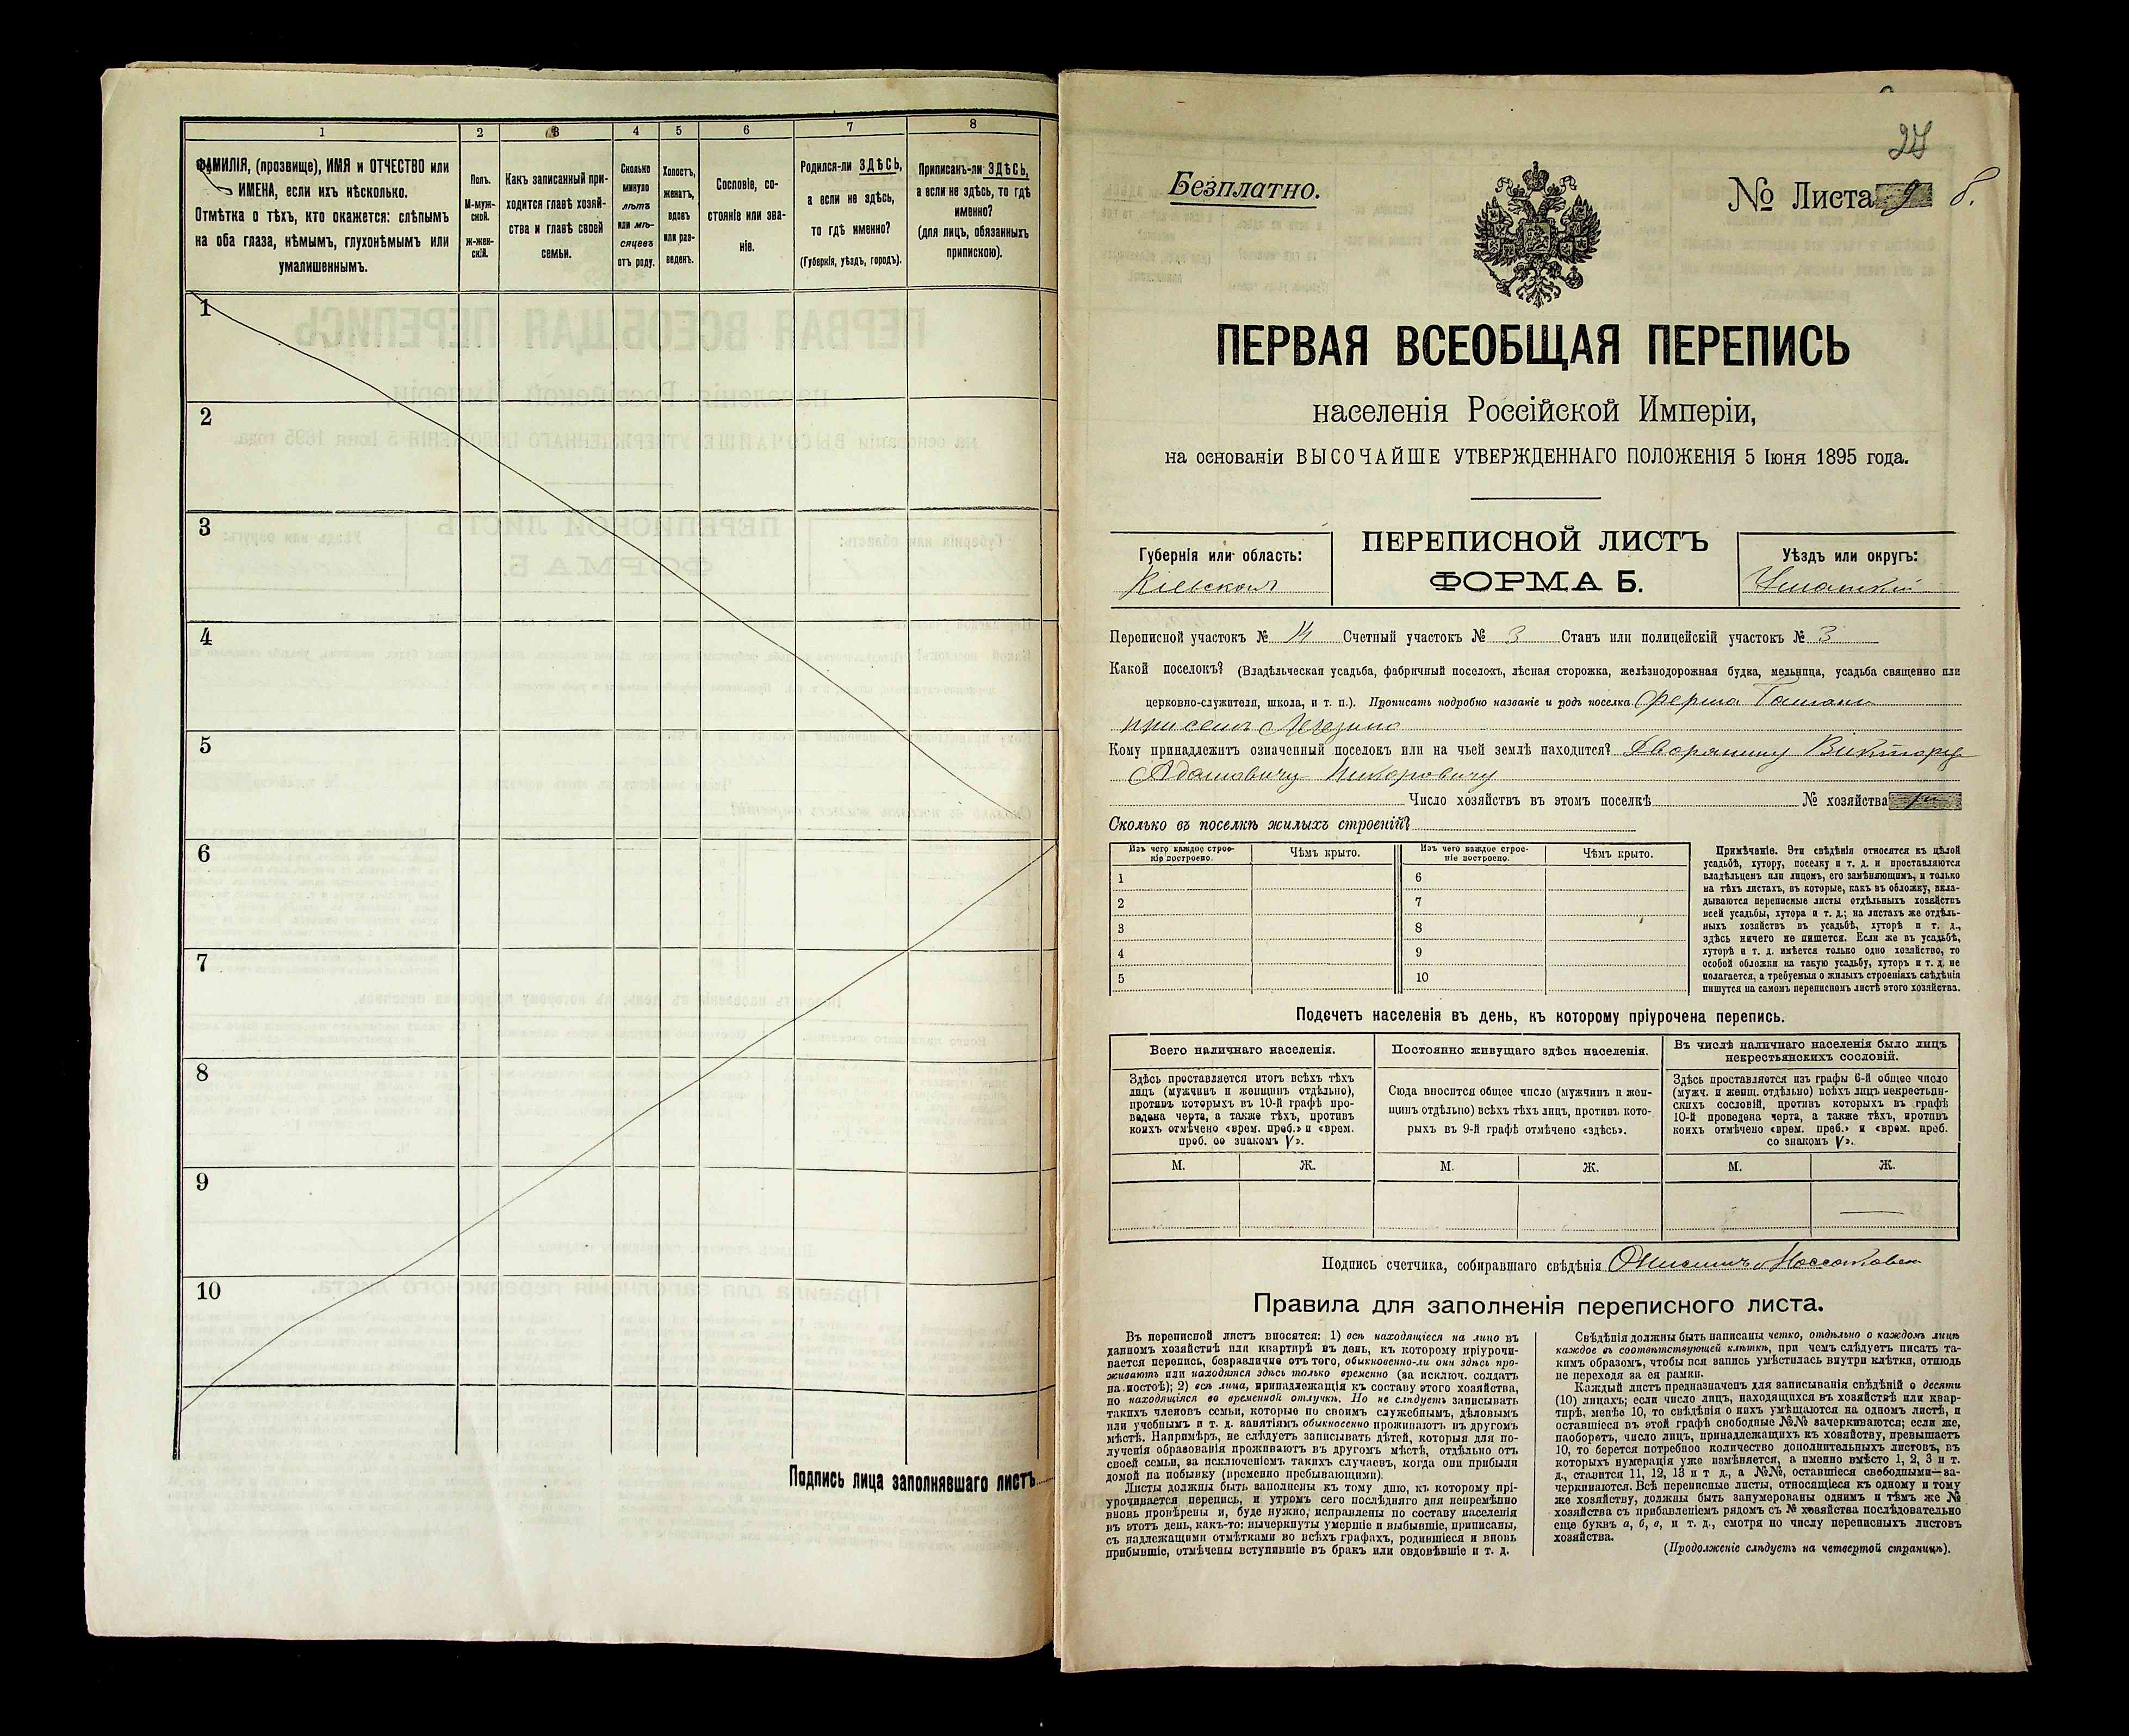 1
2
3
4
5
6
7
8
ФАМИЛІЯ, (прозвище), ИМЯ и ОТЧЕСТВО или
ИМЕНА, если ихъ нѣсколько.
Отмѣтка о тѣхъ, кто окажется: слѣпымъ
на оба глаза, нѣмымъ, глухонѣмымъ или
умалишеннымъ.
Полъ.
М-муж-
ской.
Ж-жен-
скій.
Какъ записанный при-
ходится главѣ хозяй-
ства и главѣ своей
семьи.
Сколько
минуло
лѣтъ
или мѣ-
сяцевъ
отъ роду.
Холостъ,
женатъ,
вдовъ
или раз-
веденъ.
Сословіе, со-
стояніе или зва-
ніе.
Родился-ли ЗДѢСЬ,
а если не здѣсь,
то гдѣ именно?
(Губернія, уѣздъ, городъ).
Приписанъ-ли ЗДѢСЬ,
а если не здѣсь, то гдѣ
именно?
(для лицъ, обязанныхъ
припискою).
1
2
3
4
5
6
7
8
9
10
Подпись лица заполнявшаго листъ
Безплатно.
№ Листа 9 б.
ПЕРВАЯ ВСЕОБЩАЯ ПЕРЕПИСЬ
населенія Россійской Имперіи,
на основаніи ВЫСОЧАЙШЕ УТВЕРЖДЕННАГО ПОЛОЖЕНІЯ 5 Іюня 1895 года.
Губернія или область:
Кіевская
ПЕРЕПИСНОЙ ЛИСТЪ
ФОРМА Б.
Уѣздъ или округъ:
Переписной участокъ № Счетный участокъ № 3 Станъ или полицейскій участокъ № 3
Какой поселокъ? (Владѣльческая усадьба, фабричный поселокъ, лѣсная сторожка, желѣзнодорожная будка, мельница, усадьба священно или
церковно-служителя, школа, и т. п.). Прописать подробно названіе и родъ поселка ферма
при селѣ
Кому принадлежитъ означенный поселокъ или на чьей землѣ находится? Дворянину Виктору
Адамовичу
Число хозяйствъ въ этомъ поселкѣ № хозяйства
Сколько въ поселкѣ жилыхъ строеній?
Изъ чего каждое строе-
ніе построено.
Чѣмъ крыто.
Изъ чего каждое строе-
ніе построено.
Чѣмъ крыто.
1
2
3
4
5
6
7
8
9
10
Примѣчаніе. Эти свѣдѣнія относятся къ цѣлой
усадьбѣ, хутору, поселку и т. д. и проставляются
владѣльцемъ или лицомъ, его замѣняющимъ, и только
на тѣхъ листахъ, въ которые, какъ въ обложку, вкла-
дываются переписные листы отдѣльныхъ хозяйствъ
всей усадьбы, хутора и т. д.; на листахъ же отдѣль-
ныхъ хозяйствъ въ усадьбѣ, хуторѣ и т. д.,
здѣсь ничего не пишется. Если же въ усадьбѣ,
хуторѣ и т. д. имѣется только одно хозяйство, то
особой обложки на такую усадьбу, хуторъ и т. д. не
полагается, а требуемыя о жилыхъ строеніяхъ свѣдѣнія
пишутся на самомъ переписномъ листѣ этого хозяйства.
Подсчетъ населенія въ день, къ которому пріурочена перепись.
Всего наличнаго населенія.
Здѣсь проставляется итогъ всѣхъ тѣхъ
лицъ (мужчинъ и женщинъ отдѣльно),
противъ которыхъ въ 10-й графѣ про-
ведена черта, а также тѣхъ, противъ
коихъ отмѣчено «врем. преб.» и «врем.
преб. со знакомъ V».
Постоянно живущаго здѣсь населенія.
Сюда вносится общее число (мужчинъ и жен-
щинъ отдѣльно) всѣхъ тѣхъ лицъ, противъ кото-
рыхъ въ 9-й графѣ отмѣчено «здѣсь».
Въ числѣ наличнаго населенія было лицъ
некрестьянскихъ сословій.
Здѣсь проставляется изъ графы 6-й общее число
(мужч. и женщ. отдѣльно) всѣхъ лицъ некрестьян-
скихъ сословій, противъ которыхъ въ графѣ
10-й проведена черта, а также тѣхъ, противъ
коихъ отмѣчено «врем. преб.» и «врем. преб.
со знакомъ V».
М. Ж. М. Ж. М. Ж.
Подпись счетчика, собиравшаго свѣдѣнія
Правила для заполненія переписного листа.
Въ переписной листъ вносятся: 1) всѣ находящіеся на лицо въ
данномъ хозяйствѣ или квартирѣ въ день, къ которому пріурочи-
вается перепись, безразлично отъ того, обыкновенно-ли они здѣсь про-
живаютъ или находятся здѣсь только временно (за исключ. солдатъ
на постоѣ); 2) всѣ лица, принадлежащія къ составу этого хозяйства,
но находящіяся во временной отлучкѣ. Но не слѣдуетъ записывать
такихъ членовъ семьи, которые по своимъ служебнымъ, дѣловымъ
или учебнымъ и т. д. занятіямъ обыкновенно проживаютъ въ другомъ
мѣстѣ. Напримѣръ, не слѣдуетъ записывать дѣтей, которыя для по-
лученія образованія проживаютъ въ другомъ мѣстѣ, отдѣльно отъ
своей семьи, за исключеніемъ такихъ случаевъ, когда они прибыли
домой на побывку (временно пребывающими).
Листы должны быть заполнены къ тому дню, къ которому прі-
урочивается перепись, и утромъ сего послѣдняго дня непремѣнно
вновь провѣрены и, буде нужно, исправлены по составу населенія
въ этотъ день, какъ-то: вычеркнуты умершіе и выбывшіе, приписаны,
съ надлежащими отмѣтками во всѣхъ графахъ, родившіеся и вновь
прибывшіе, отмѣчены вступившіе въ бракъ или овдовѣвшіе и т. д.
Свѣдѣнія должны быть написаны четко, отдѣльно о каждомъ лицѣ
каждое въ соотвѣтствующей клѣткѣ, при чемъ слѣдуетъ писать та-
кимъ образомъ, чтобы вся запись умѣстилась внутри клѣтки, отнюдь
не переходя за ея рамки.
Каждый листъ предназначенъ для записыванія свѣдѣній о десяти
(10) лицахъ; если число лицъ, находящихся въ хозяйствѣ или квар-
тирѣ, менѣе 10, то свѣдѣнія о нихъ умѣщаются на одномъ листѣ, и
оставшіеся въ этой графѣ свободные №№ зачеркиваются; если же,
наоборотъ, число лицъ, принадлежащихъ къ хозяйству, превышаетъ
10, то берется потребное количество дополнительныхъ листовъ, въ
которыхъ нумерація уже измѣняется, а именно вмѣсто 1, 2, 3 и т.
д., ставится 11, 12, 13 и т д., а №№, оставшіеся свободными—за-
черкиваются. Всѣ переписные листы, относящіеся къ одному и тому
же хозяйству, должны быть занумерованы однимъ и тѣмъ же №
хозяйства съ прибавленіемъ рядомъ съ № хозяйства послѣдовательно
еще буквъ а, б, в, и т. д., смотря по числу переписныхъ листовъ
хозяйства.
(Продолженіе слѣдуетъ на четвертой страницѣ).